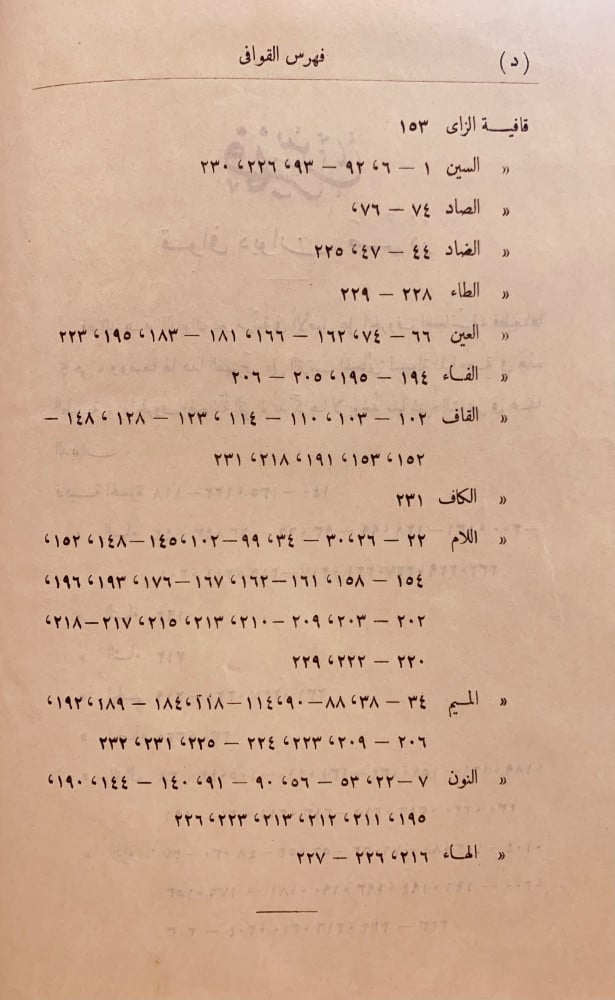 (د) فهرس القوافى
قافيــة الزاى ١٥٣
» السين ١ — ٦، ٩٢ — ٩٣، ٢٢٦، ٢٣٠
» الصاد ٧٤ — ٧٦،
» الضاد ٤٤ — ٤٧، ٢٢٥
» الطاء ٢٢٨ — ٢٢٩
» العين ٦٦ — ٧٤، ١٦٢ — ١٦٦، ١٨١ — ١٨٣، ١٩٥، ٢٢٣
» الفـاء ١٩٤ — ١٩٥، ٢٠٥ — ٢٠٦
» القاف ١٠٢ — ١٠٣، ١١٠ — ١١٤، ١٢٣ — ١٢٨، ١٤٨ —
١٥٢، ١٥٣، ١٩١، ٢١٨، ٢٣١
» الكاف ٢٣١
» اللام ٢٢ — ٢٦، ٣٠ — ٣٤، ٩٩—١٠٢، ١٤٥—١٤٨، ١٥٢،
١٥٤ — ١٥٨، ١٦١—١٦٢، ١٦٧—١٧٦، ١٩٣، ١٩٦،
٢٠٢ — ٢٠٣، ٢٠٩ —٢١٠، ٢١٣، ٢١٥، ٢١٧—٢١٨،
٢٢٠ — ٢٢٢، ٢٢٩
» الميم ٣٤ — ٣٨، ٨٨—٩٠، ١١٤—١١٨، ١٨٤ — ١٨٩، ١٩٢،
٢٠٦ — ٢٠٩، ٢٢٣، ٢٢٤ — ٢٢٥، ٢٣١، ٢٣٢
» النون ٧ —٢٢، ٥٣ — ٥٦، ٩٠ — ٩١، ١٤٠ — ١٤٤، ١٩٠،
١٩٥، ٢١١، ٢١٢، ٢١٣، ٢٢٣، ٢٢٦
» الهـاء ٢١٦، ٢٢٦ — ٢٢٧